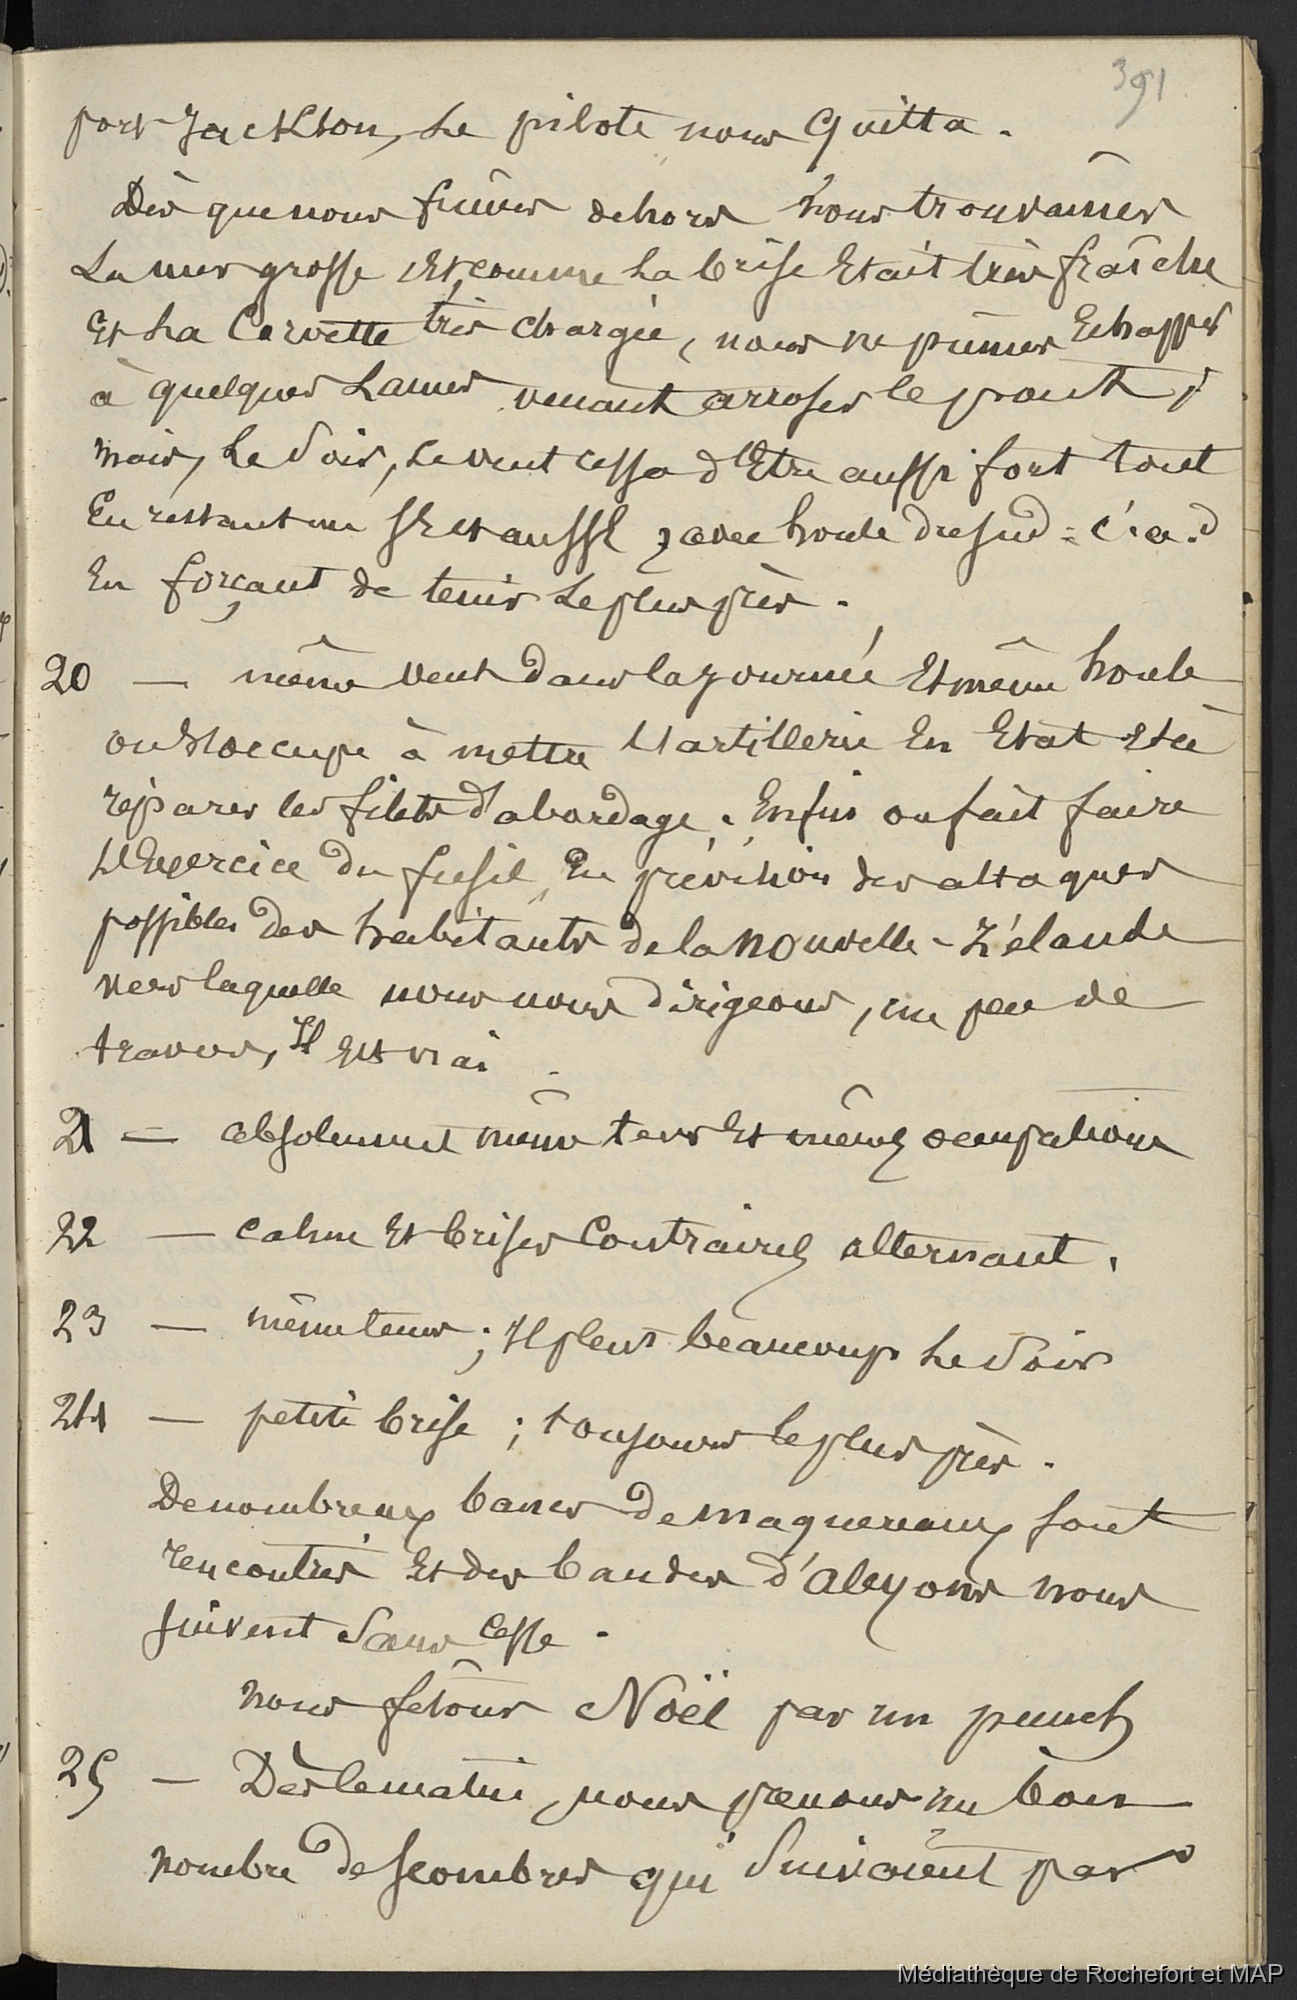 391
port Jackson, Le pilote nous Quitta.
Dès que nous fûmes dehors nous trouvâmes
La mer grosse Et, comme La brise Etait très fraîche
Et La Corvette très chargée, nous ne pûmes Echapper
à quelques Lames venant arroser le pont ;
mais, Le Soir, Le vent cessa d'Etre aussi fort tout
En restant au SE et au SSE, avec houle du sud = c.a.d
En forçant de tenir Le plus près.
20 — même vent dans la journée Et même houle
on s'occupe à mettre L'artillerie En Etat et à
réparer les filets d'abordage. Enfin on fait faire
L'Exercice du fusil, En prévision des attaques
possibles des habitants de la Nouvelle-Zélande
vers laquelle nous nous dirigeons, un peu de
travers, Il Est vrai.
21 — absolument même tems Et mêmes occupations
22 — Calme Et brises Contraires alternant.
23 — même tems ; Il pleut beaucoup Le Soir
24 — petite brise ; toujours Le plus près.
De nombreux bancs de maquereaux sont
rencontrés Et des bandes d'alcyons nous
suivent Sans cesse.
nous fêtons Noël par un punch
25 — Dès le matin, nous prenons un bon
nombre de scombres qui Suivaient par
Médiathèque de Rochefort et MAP